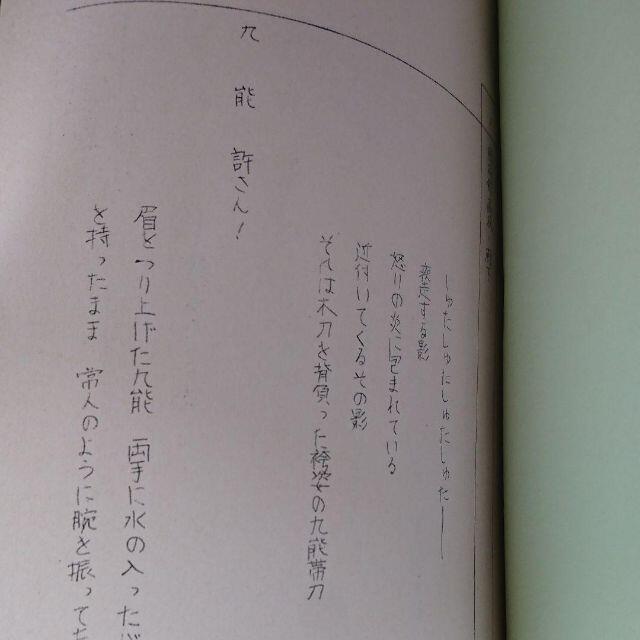 しゅたしゅたしゅたしゅた――
疾走する影
怒りの炎に包まれている
近付いてくるその影
それは木刀を背負った袴姿の九能帯刀
九能 許さん!
眉をつり上げた九能 両手に水の入ったバ
を持ったまま 常人のように腕を振って